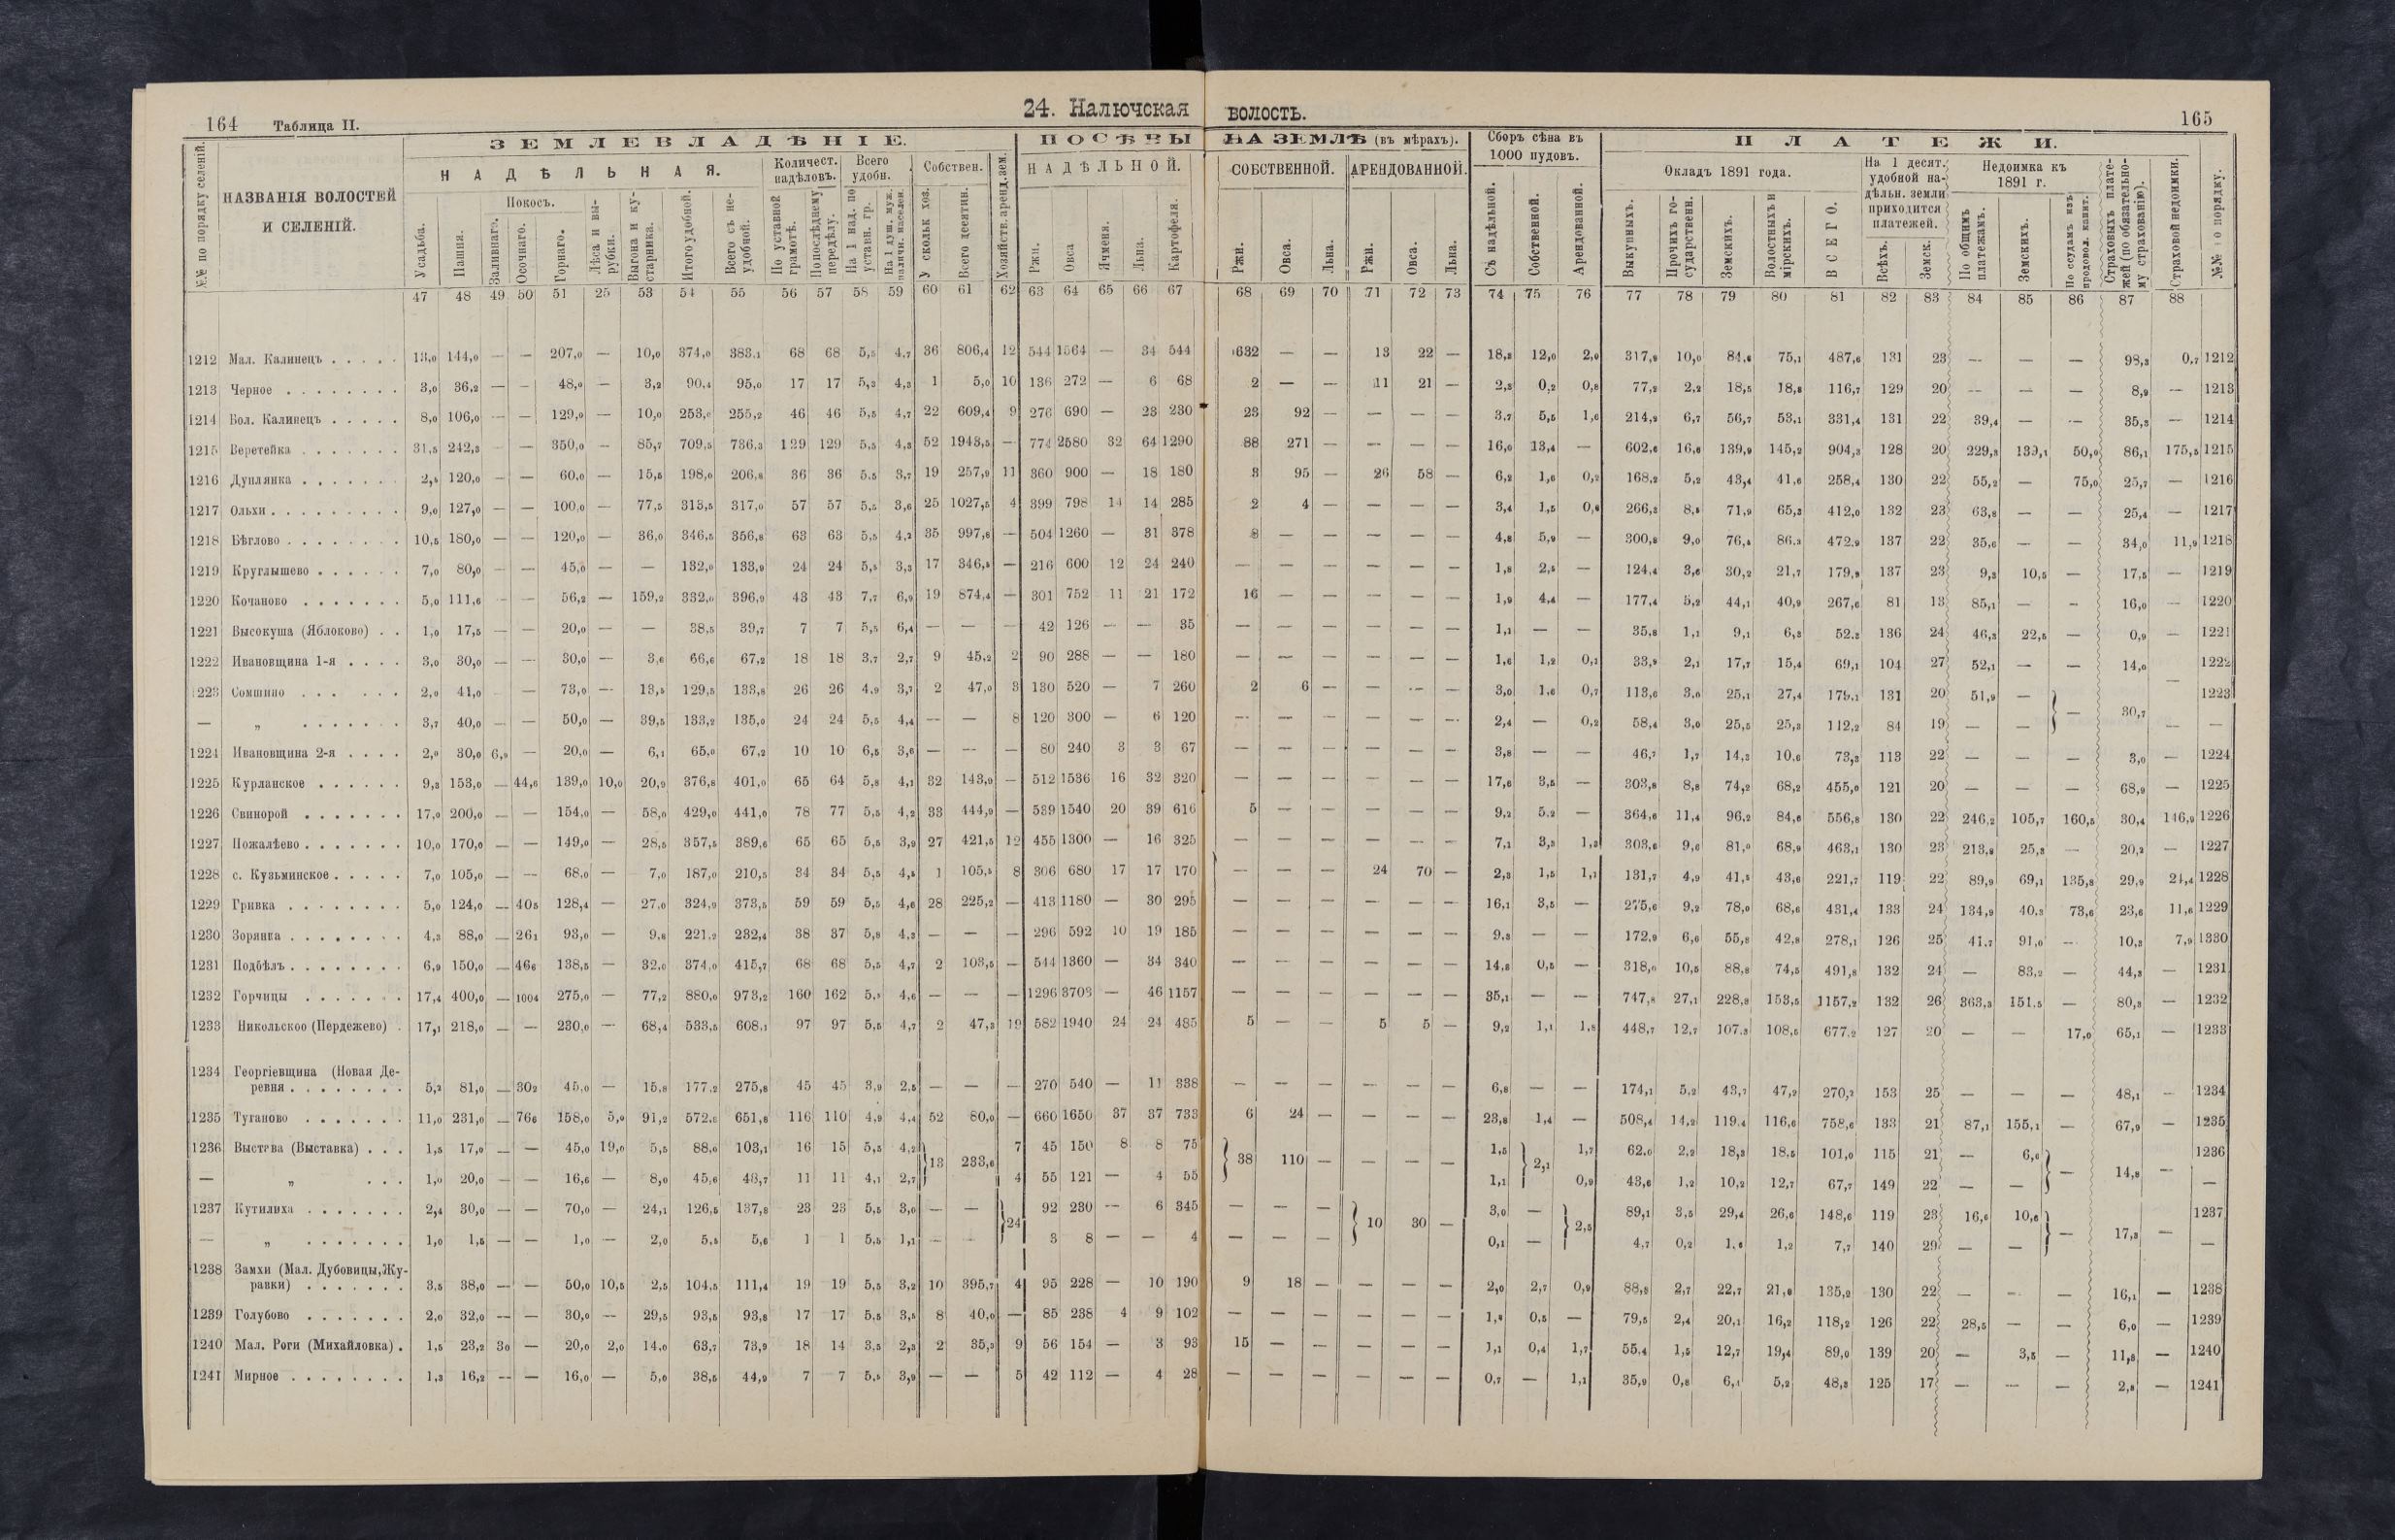 164 Таблица II.
24. Налючская волость.
165
ЗЕМЛЕВЛАДѢНІЕ.
ПОСѢВЫ НА ЗЕМЛѢ (въ мѣрахъ).
Сборъ сѣна въ 1000 пудовъ.
ПЛАТЕЖИ.
№№ по порядку селеній.
НАЗВАНІЯ ВОЛОСТЕЙ И СЕЛЕНІЙ.
НАДѢЛЬНАЯ.
Количест. надѣловъ.
Всего удобн.
Собствен.
Хозяйств. аренд. зем.
НАДѢЛЬНОЙ.
СОБСТВЕННОЙ.
АРЕНДОВАННОЙ.
Окладъ 1891 года.
На 1 десят. удобной надѣльн. земли приходится платежей.
Недоимка къ 1891 г.
Страховыхъ платежей (по обязательному страхованію).
Страховой недоимки.
№№ по порядку.
Усадьба. Пашня. Покосъ. Заливнаго. Осочнаго. Горнаго. Лѣса и вырубки. Выгона и кустарника. Итого удобной. Всего съ неудобной.
По уставной грамотѣ. По послѣднему передѣлу. На 1 над. по уставн. гр. На 1 душ. муж. наличн. населен. У скольк хоз. Всего десятин.
Ржи. Овса Ячменя. Льна. Картофеля.
Ржи. Овса. Льна. Ржи. Овса. Льна.
Съ надѣльной. Собственной. Арендованной.
Выкупныхъ. Прочихъ государственн. Земскихъ. Волостныхъ и мірскихъ. ВСЕГО. Всѣхъ. Земск. По общимъ платежамъ. Земскихъ. По ссудамъ изъ продовол. капит.
47 48 49 50 51 25 53 54 55 56 57 58 59 60 61 62 63 64 65 66 67 68 69 70 71 72 73 74 75 76 77 78 79 80 81 82 83 84 85 86 87 88
1212 Мал. Калинецъ . . . . . 13,0 144,0 — — 207,0 — 10,0 374,0 383,1 68 68 5,5 4,7 36 806,4 12 544 1564 — 34 544 632 — — 13 22 — 18,3 12,0 2,0 317,9 10,0 84,6 75,1 487,6 131 23 — — — 98,3 0,7 1212
1213 Черное . . . . . . . . 3,0 36,2 — — 48,0 — 3,2 90,4 95,0 17 17 5,3 4,3 1 5,0 10 136 272 — 6 68 2 — — 11 21 — 2,3 0,2 0,8 77,2 2,2 18,5 18,8 116,7 129 20 — — — 8,9 — 1213
1214 Бол. Калинецъ . . . . . 8,0 106,0 — — 129,0 — 10,0 253,0 255,2 46 46 5,5 4,7 22 609,4 9 276 690 — 23 230 23 92 — — — — 3,7 5,5 1,6 214,9 6,7 56,7 53,1 331,4 131 22 39,4 — — 35,3 — 1214
1215 Веретейка . . . . . . . 31,5 242,3 — 350,0 — 85,7 709,5 736,3 129 129 5,5 4,3 52 1943,5 — 774 2580 32 64 1290 88 271 — — — — 16,0 13,4 — 602,6 16,6 139,9 145,2 904,3 128 20 229,3 139,1 50,0 86,1 175,5 1215
1216 Дуплянка . . . . . . . 2,5 120,0 — — 60,0 — 15,5 198,0 206,8 36 36 5,5 3,7 19 257,9 11 360 900 — 18 180 3 95 — 26 58 — 6,2 1,6 0,2 168,2 5,2 43,4 41,6 258,4 130 22 55,2 — 75,0 25,7 — 1216
1217 Ольхи . . . . . . . . . 9,0 127,0 — — 100,0 — 77,5 313,5 317,0 57 57 5,5 3,6 25 1027,5 4 399 798 14 14 285 2 4 — — — — 3,4 1,5 0,8 266,3 8,8 71,9 65,3 412,0 132 23 63,8 — — 25,4 — 1217
1218 Бѣглово . . . . . . . . 10,5 180,0 — — 120,0 — 36,0 346,5 356,8 63 63 5,5 4,2 35 997,8 — 504 1260 — 31 378 8 — — — — — 4,8 5,9 — 300,8 9,0 76,8 86,3 472,9 137 22 35,6 — — 34,0 11,9 1218
1219 Круглышево . . . . . . 7,0 80,0 — — 45,0 — — 132,0 133,9 24 24 5,5 3,3 17 346,5 — 216 600 12 24 240 — — — — — — 1,8 2,5 — 124,4 3,6 30,2 21,7 179,9 137 23 9,3 10,5 — 17,5 — 1219
1220 Кочаново . . . . . . . 5,0 111,6 — — 56,2 — 159,2 332,0 396,9 43 43 7,7 6,9 19 874,4 — 301 752 11 21 172 16 — — — — — 1,9 4,4 — 177,4 5,2 44,1 40,9 267,6 81 13 85,1 — — 16,0 — 1220
1221 Высокуша (Яблоково) . . 1,0 17,5 — — 20,0 — — 38,5 39,7 7 7 5,5 6,4 — — — 42 126 — — 35 — — — — — — 1,1 — — 35,8 1,1 9,1 6,3 52,3 136 24 46,3 22,5 — 0,9 — 1221
1222 Ивановщина 1-я . . . . 3,0 30,0 — — 30,0 — 3,6 66,6 67,2 18 18 3,7 2,7 9 45,2 2 90 288 — — 180 — — — — — — 1,6 1,2 0,1 33,9 2,1 17,7 15,4 69,1 104 27 52,1 — — 14,0 1222
1223 Сомшино . . . . . . 2,0 41,0 — 73,0 — 13,5 129,5 133,8 26 26 4,9 3,7 2 47,0 3 130 520 — 7 260 2 6 — — — — 3,0 1,6 0,7 113,6 3,6 25,1 27,4 179,1 131 20 51,9 — — 30,7 — 1223
— „ . . . . . . . 3,7 40,0 — — 50,0 — 39,5 133,2 135,0 24 24 5,5 4,4 — — 8 120 300 — 6 120 — — — — — — 2,4 — 0,2 58,4 3,0 25,5 25,3 112,2 84 19 — — — —
1224 Ивановщина 2-я . . . . 2,0 30,0 6,9 — 20,0 — 6,1 65,0 67,2 10 10 6,5 3,6 — — — 80 240 3 3 67 — — — — — — 3,8 — — 46,7 1,7 14,3 10,6 73,3 113 22 — — — 3,0 — 1224
1225 Курланское . . . . . . 9,3 153,0 — 44,6 139,0 10,0 20,9 376,8 401,0 65 64 5,8 4,1 32 143,9 — 512 1536 16 32 320 — — — — — — 17,6 3,5 — 303,8 8,8 74,2 68,2 455,0 121 20 — — — 68,9 — 1225
1226 Свинорой . . . . . . . 17,0 200,0 — — 154,0 — 58,0 429,0 441,0 78 77 5,5 4,2 33 444,9 — 539 1540 20 39 616 5 — — — — — 9,2 5,2 — 364,6 11,4 96,2 84,6 556,8 130 22 246,2 105,7 160,5 30,4 146,9 1226
1227 Пожалѣево . . . . . . . 10,0 170,0 — — 149,0 — 28,5 357,5 389,6 65 65 5,5 3,9 27 421,5 12 455 1300 — 16 325 — — — — — — 7,1 3,3 1,3 303,6 9,6 81,0 68,9 463,1 130 23 213,8 25,8 — 20,2 — 1227
1228 с. Кузьминское . . . . . 7,0 105,0 — — 68,0 — 7,0 187,0 210,5 34 34 5,5 4,5 1 105,5 8 306 680 17 17 170 — — — 24 70 — 2,3 1,5 1,1 131,7 4,9 41,5 43,6 221,7 119 22 89,9 69,1 135,8 29,9 24,4 1228
1229 Гривка . . . . . . . . 5,0 124,0 — 405 128,4 — 27,0 324,9 373,5 59 59 5,5 4,6 28 225,2 — 413 1180 — 30 295 — — — — — — 16,1 3,5 — 275,6 9,2 78,0 68,6 431,4 133 24 134,9 40,3 73,6 23,6 11,6 1229
1230 Зорянка . . . . . . . . 4,3 88,0 — 261 93,0 — 9,8 221,2 232,4 38 37 5,8 4,3 — — — 296 592 10 19 185 — — — — — — 9,3 — — 172,9 6,6 55,8 42,8 278,1 126 25 41,7 91,0 — 10,3 7,9 1330
1231 Подбѣлъ . . . . . . . . 6,9 150,0 — 466 138,5 — 32,0 374,0 415,7 68 68 5,5 4,7 2 103,5 — 544 1360 — 34 340 — — — — — — 14,8 0,5 — 318,0 10,5 88,8 74,5 491,8 132 24 — 83,2 — 44,3 — 1231
1232 Горчицы . . . . . . . 17,4 400,0 — 1004 275,0 — 77,2 880,0 973,2 160 162 5,5 4,6 — — — 1296 3703 — 46 1157 — — — — — — 35,1 — — 747,8 27,1 228,8 153,5 1157,2 132 26 363,3 151,5 — 80,3 — 1232
1233 Никольскоо (Пердежево) . 17,1 218,0 — — 230,0 — 68,4 533,5 608,1 97 97 5,5 4,7 2 47,3 19 582 1940 24 24 485 5 — — 5 5 — 9,2 1,1 1,8 448,7 12,7 107,3 108,5 677,2 127 20 — — 17,0 65,1 — 1233
1234 Георгіевщина (Новая Де-
ревня . . . . . . . . 5,2 81,0 — 302 45,0 — 15,8 177,2 275,8 45 45 3,9 2,5 — — — 270 540 — 11 338 — — — — — — 6,8 — — 174,1 5,2 43,7 47,2 270,2 153 25 — — — 48,1 — 1234
1235 Туганово . . . . . . . 11,0 231,0 — 766 158,0 5,0 91,2 572,6 651,8 116 110 4,9 4,4 52 80,0 — 660 1650 37 37 733 6 24 — — — — 23,8 1,4 — 508,4 14,2 119,4 116,6 758,6 133 21 87,1 155,1 — 67,9 — 1235
1236 Выстава (Выставка) . . . 1,5 17,0 — — 45,0 19,0 5,5 88,0 103,1 16 15 5,5 4,2 13 233,6 7 45 150 8 8 75 38 110 — — — — 1,5 2,1 1,7 62,0 2,2 18,3 18,5 101,0 115 21 — 6,0 — 14,8 — 1236
— „ . . . 1,0 20,0 — — 16,6 — 8,0 45,6 48,7 11 11 4,1 2,7 4 55 121 — 4 55 1,1 0,9 43,6 1,2 10,2 12,7 67,7 149 22 — — —
1237 Кутилиха . . . . . . . 2,4 30,0 — — 70,0 — 24,1 126,5 137,8 23 23 5,5 3,0 — — 24 92 230 — 6 345 — — — 10 30 — 3,0 — 2,5 89,1 3,5 29,4 26,6 148,6 119 23 16,6 10,6 — 17,3 — 1237
— „ . . . . . . . 1,0 1,5 — — 1,0 — 2,0 5,5 5,6 1 1 5,5 1,1 — — 3 8 — — 4 — — — 0,1 — 4,7 0,2 1,6 1,2 7,7 140 29 — — —
1238 Замхи (Мал. Дубовицы, Жу-
равки) . . . . . . . 3,5 38,0 — — 50,0 10,5 2,5 104,5 111,4 19 19 5,5 3,2 10 395,7 4 95 228 — 10 190 9 18 — — — — 2,0 2,7 0,9 88,8 2,7 22,7 21,0 135,2 130 22 — — — 16,1 — 1238
1239 Голубово . . . . . . . 2,0 32,0 — — 30,0 — 29,5 93,5 93,8 17 17 5,5 3,5 8 40,0 — 85 238 4 9 102 — — — — — — 1,8 0,5 — 79,5 2,4 20,1 16,2 118,2 126 22 28,5 — — 6,0 — 1239
1240 Мал. Роги (Михайловка) . 1,5 23,2 30 — 20,0 2,0 14,0 63,7 73,9 18 14 3,5 2,3 2 35,3 9 56 154 — 3 93 15 — — — — — 1,1 0,4 1,7 55,4 1,5 12,7 19,4 89,0 139 20 — 3,5 — 11,8 — 1240
1241 Мирное . . . . . . . . 1,3 16,2 — — 16,0 — 5,0 38,5 44,9 7 7 5,5 3,9 — — 5 42 112 — 4 28 — — — — — — 0,7 — 1,1 35,9 0,8 6,4 5,2 48,3 125 17 — — — 2,8 — 1241